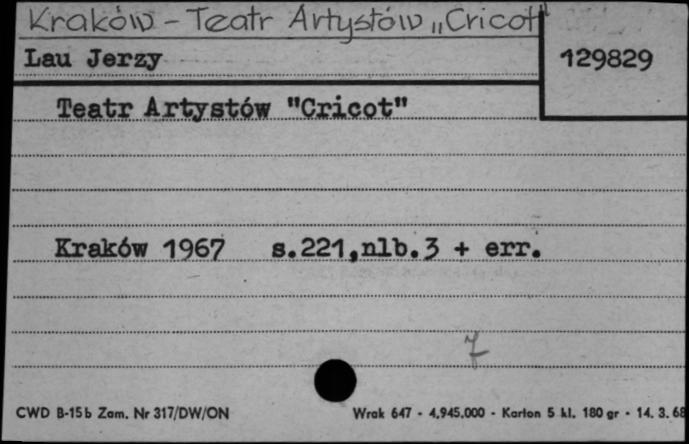 Kraków - Teatr Artystów „Cricot"
Lau Jerzy
129829
Teatr Artystów "Cricot"
Kraków 1967 s.221,nlb.3 + err.
7
CWD B-15b Zam. Nr 317/DW/ON Wrak 647 - 4.945.000 - Karton 5 kl. 180 gr - 14. 3. 68